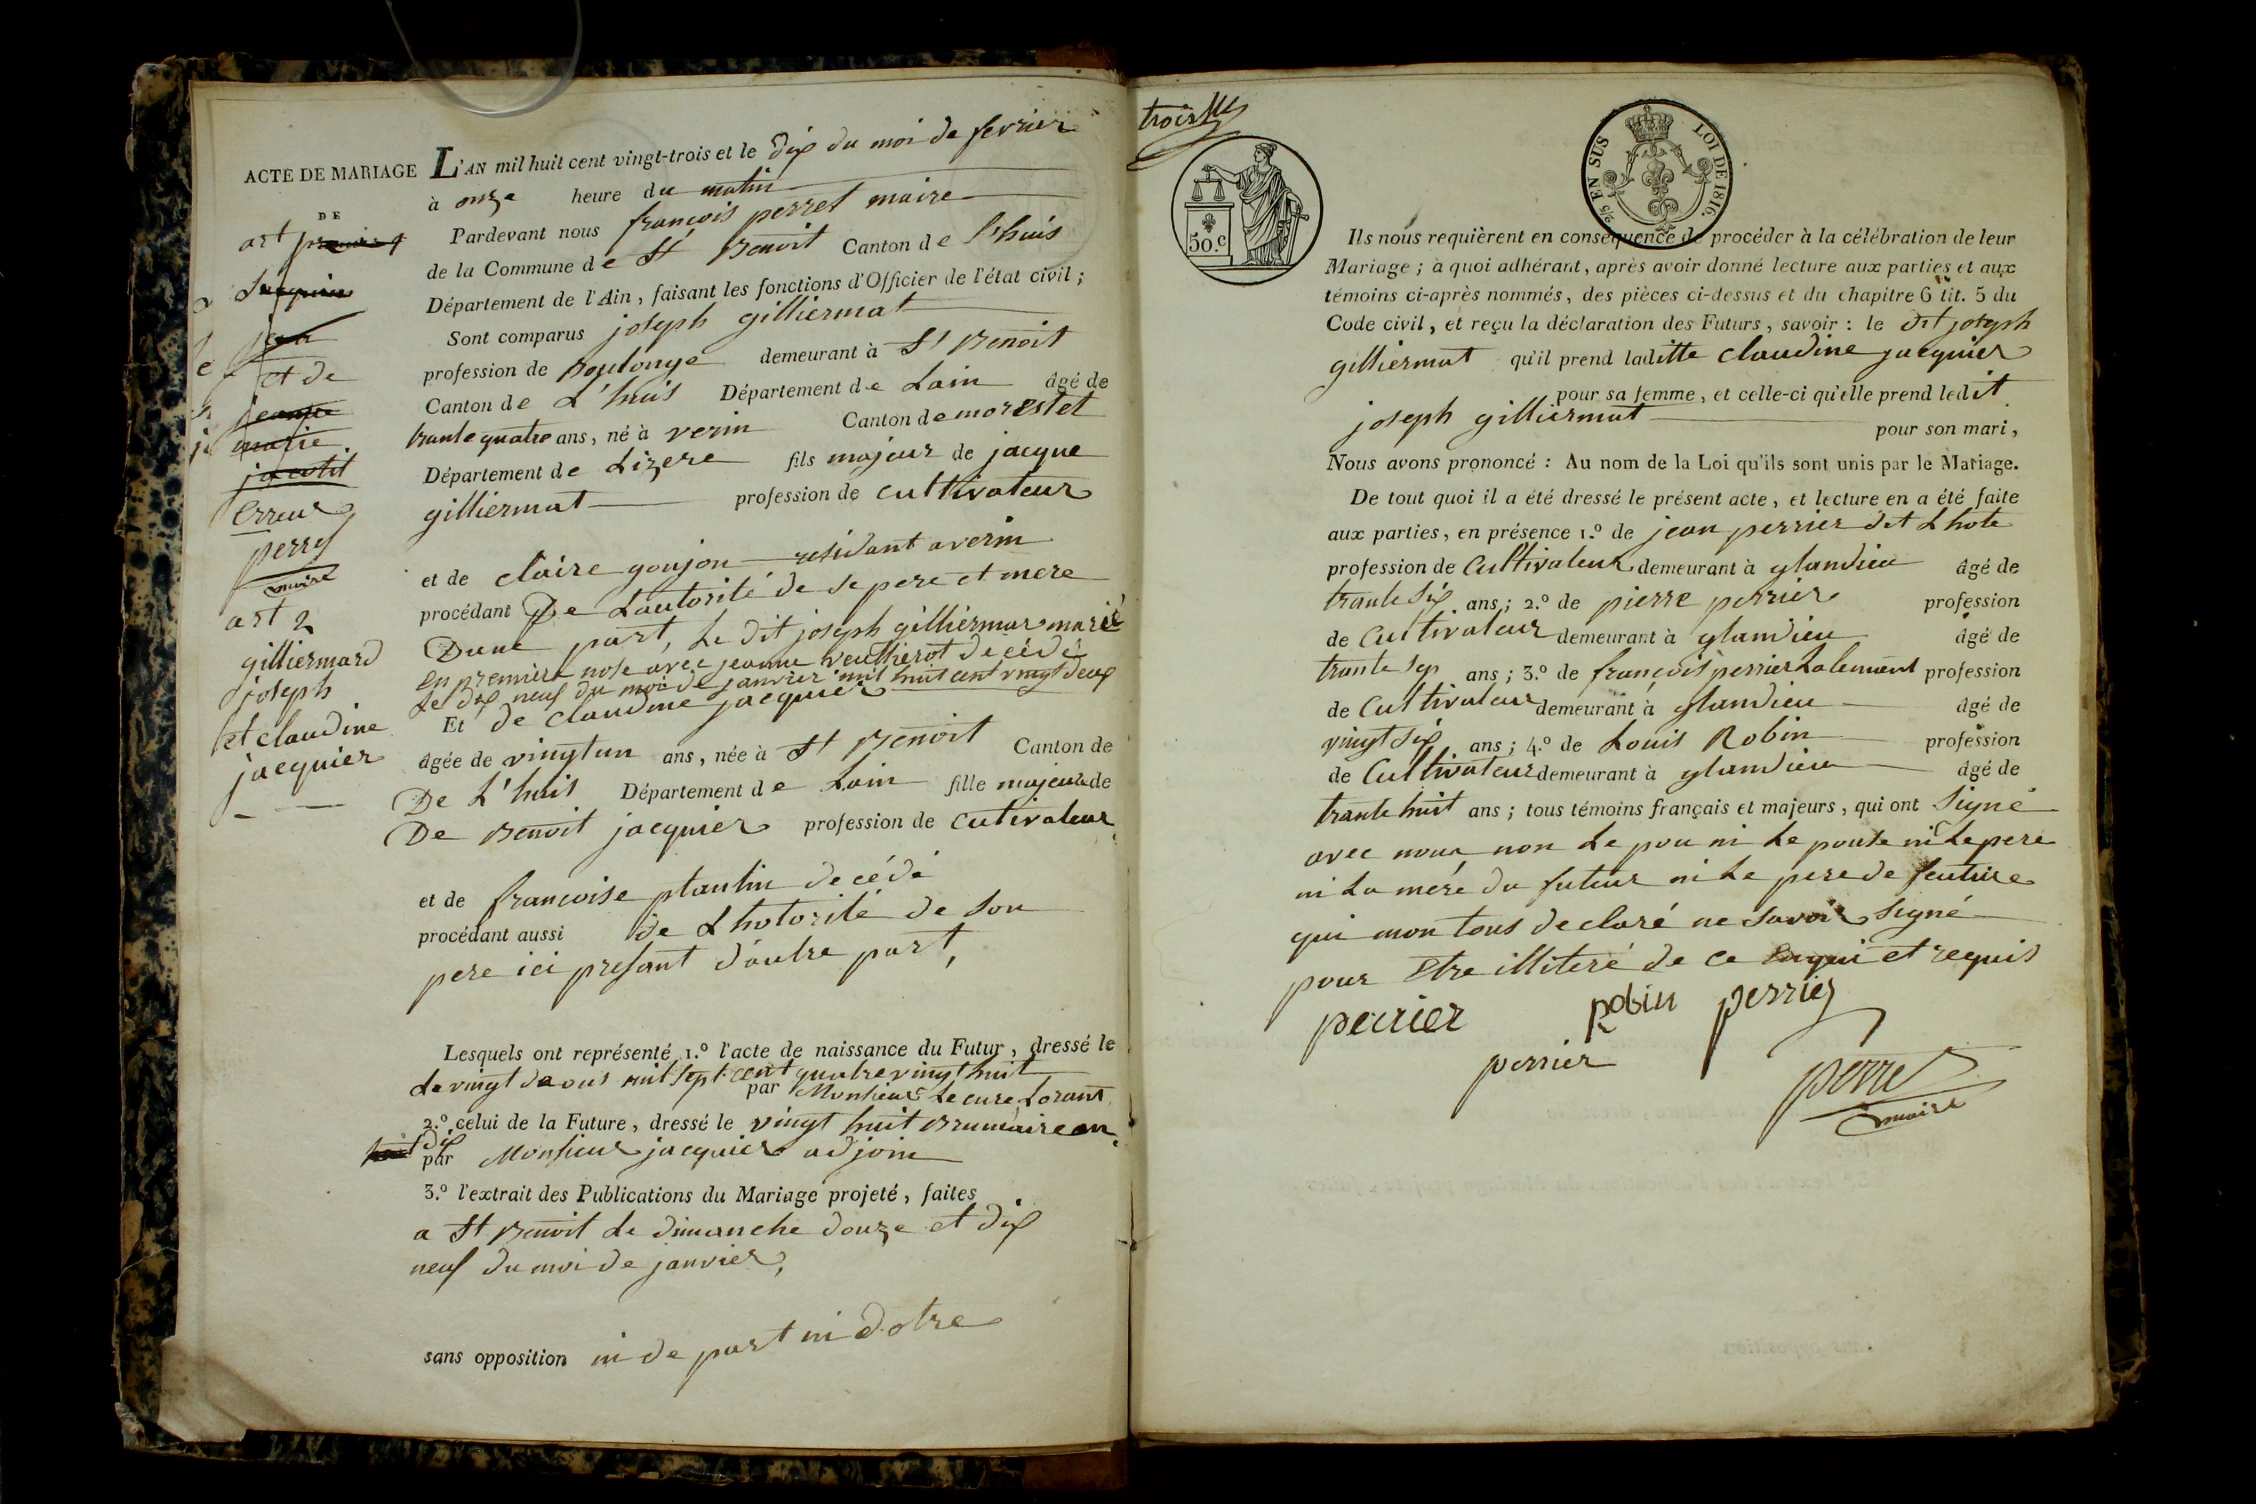 ACTE DE MARIAGE
DE
art premier
jean
et de
jeanne
marie
erreur
perret
maire
art 2
gilliermard
joseph
et claudine
jacquier
L'AN mil huit cent vingt-trois et le dix du moi de fevrier
à onze heure du matin
Pardevant nous francois perret maire
de la Commune de St Benoit Canton de Lhuis
Département de l'Ain, faisant les fonctions d'Officier de l'état civil;
Sont comparus joseph gilliermat
profession de demeurant à St Benoit
Canton de L'huis Département de Lain âgé de
trante quatre ans, né à verin Canton de morestet
Département de Lizere fils majeur de jacque
gilliermat profession de cultivateur
et de claire goujon residant a verin
procédant De Lautorité de se pere et mere
Dune part, le dit joseph gilliermar marié
en premiere nose avec jeanne decédé
le dix neuf du moi de janvier mil huit cent vingt deux
Et de claudine jacquier
âgée de vingt un ans, née à St Benoit Canton de
De L'huis Département de Lain fille majeur de
De Benoit jacquier profession de cutivateur
et de francoise plantin decédé
procédant aussi de Lhotorité de son
pere ici presant d'autre part,
Lesquels ont représenté 1.º l'acte de naissance du Futur, dressé le
le vingt de aous mil sept cent quatre vingt huit
par Monsieur Le cure Lorant
2.º celui de la Future, dressé le vingt huit Brumaire an
dix
par Monsieur jacquier adjoin
3.º l'extrait des Publications du Mariage projeté, faites
a St Benoit le dimanche douze et dix
neuf du moi de janvier,
sans opposition ni de part ni dotre
trois
50.C
2/5 EN SUS LOI DE 1816.
Ils nous requièrent en conséquence de procéder à la célébration de leur
Mariage; à quoi adhérant, après avoir donné lecture aux parties et aux
témoins ci-après nommés, des pièces ci-dessus et du chapitre 6 tit. 5 du
Code civil, et reçu la déclaration des Futurs, savoir : le dit joseph
gilliermat qu'il prend laditte claudine jacquier
pour sa femme, et celle-ci qu'elle prend ledit
joseph gilliermat
pour son mari,
Nous avons prononcé : Au nom de la Loi qu'ils sont unis par le Mariage.
De tout quoi il a été dressé le présent acte, et lecture en a été faite
aux parties, en présence 1.º de jean perrier dit Lhote
profession de Cultivateur demeurant à glandieu âgé de
trante six ans; 2.º de pierre perrier profession
de Cultivateur demeurant à glandieu âgé de
trante sep ans; 3.º de francois perrier Lalemant profession
de Cultivateur demeurant à glandieu âgé de
vingt six ans; 4.º de Louis Robin profession
de Cultivateur demeurant à glandieu âgé de
trante huit ans; tous témoins français et majeurs, qui ont Signé
avec nous non Le pou ni Le pouse ni Le pere
ni La mére du futur ni Le pere de feuture
qui mon tous declaré ne savoir signé
pour Etre illiteré de ce enqui et requis
perrier robin perrier
perrier
perret
maire